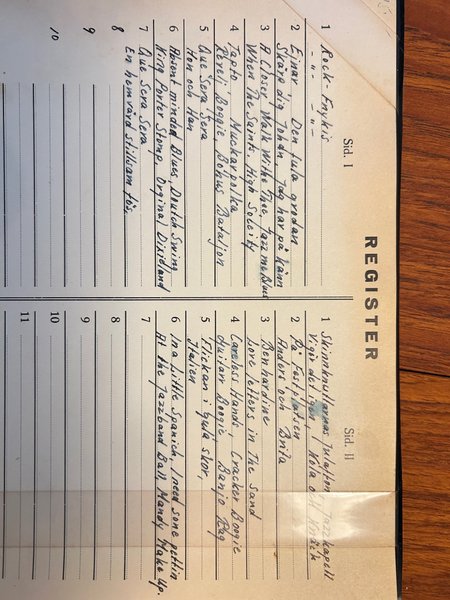 REGISTER
Sid. I
1 Rock-Fnykis
-"- -"-
2 Ejnar Den fula grodan
Skärp dig Johan, Jag har på känn
3 A Closer Walk With Thee, Jazz me Blues
When The Saints. High Soceity
4 Tapto Muckarpolka
Revelj Boggie, Bohus Bataljon
5 Que Sera Sera
Hon och Han
6 Absent minded Blues, Doutch Swing
King Porter Stomp, Orginal Dixieland
7 Que Sera Sera
En hemvärd stillsam fös,
8
9
10
Sid. II
1 Skinnknuttarnas Julafton, Jazzkapell
Vi gör det igen, Nola och Knäck
2 På Festplatsen
Anders och Brita
3 Benhardine
Love letters in The sand
4 Careless Hands Cracker Boogie
Guitarr Boogie Banjo Rag
5 Flickan i gula skor,
Italien
6 In a Little Spanich, I need some pettin
At the Jazzband Ball, Mandy Wake Up.
7
8
9
10
11